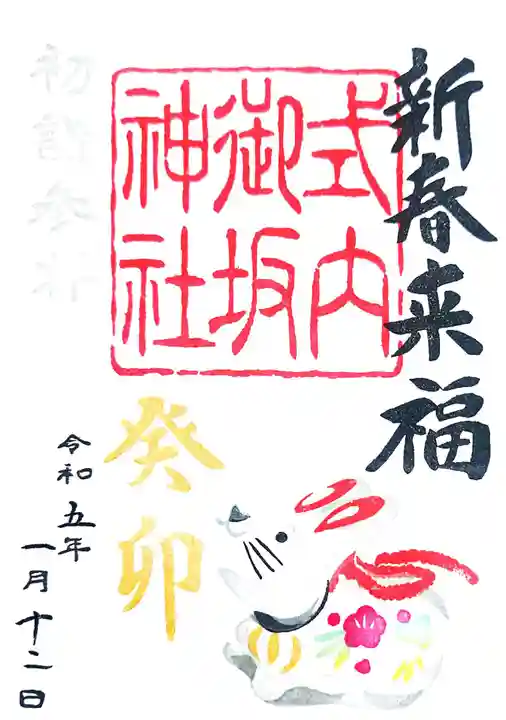 新春来福
式内
御坂
神社
初詣参拝
癸卯
令和五年
一月十二日